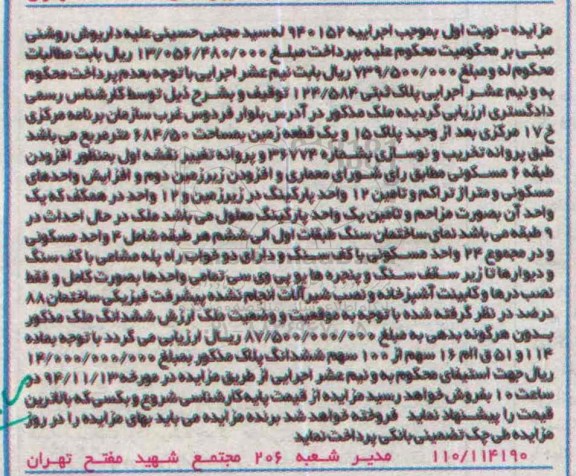 مزایده - نوبت اول بموجب اجراییه ۹۴۰۱۵۲ له سید مجتبی حسینی علیه داریوش روشنی
مبنی بر محکومیت محکوم علیه بپرداخت مبلغ ۱۳/۰۵۶/۴۸۰/۰۰۰ ریال بابت مطالبات
محکوم له و مبلغ ۷۳۹/۵۰۰/۰۰۰ ریال بابت نیم عشر اجرایی با توجه بعدم پرداخت محکوم
به و نیم عشر اجرایی پلاک ثبتی ۱۲۴/۵۸۴ توقیف و بشرح ذیل توسط کارشناس رسمی
دادگستری ارزیابی گردیده ملک مذکور در آدرس بلوار فردوس غرب سازمان برنامه مرکزی
خ ۱۷ مرکزی بعد از وحید پلاک ۱۵ و یک قطعه زمین بمساحت ۶۸۴/۵۰ مترمربع می باشد
طبق پروانه تخریب و نوسازی بشماره ۳۶۷۷۴ و پروانه تغییر نقشه اول بمنظور افزودن
طبقه ۶ مسکونی مطابق رای شورای معماری و افزودن زیرزمین دوم و افزایش واحدهای
مسکونی و متراژ تراکم و تامین ۱۲ واحد پارکینگ در زیرزمین و ۱۲ واحد در همکف که یک
واحد آن بصورت مزاحم و تامین یک واحد پارکینگ معلول می باشد ملک در حال احداث در
۹ طبقه می باشد نمای ساختمان سنگ طبقات اول الی ششم هر طبقه شامل ۴ واحد مسکونی
و در مجموع ۲۴ واحد مسکونی با کف سنگ و دارای دو خواب راه پله مشاعی با کف سنگ
و دیوارها تا زیر سقف سنگ و پنجره ها یو پی وی سی تمامی واحدها بصورت کامل و فقط
نصب درها و کابینت آشپزخانه و نصب شیرآلات انجام نشده پیشرفت فیزیکی ساختمان ۸۸
درصد در نظر گرفته شده با توجه به موقعیت و وضعیت ملک ارزش ششدانگ ملک مذکور
بدون هرگونه بدهی به مبلغ ۸۷/۵۰۰/۰۰۰/۰۰۰ ریال ارزیابی می گردد با توجه بماده
۱۱۴ و ۵۱ ق اام ۱۶ سهم از ۱۰۰ سهم ششدانگ پلاک مذکور بمبلغ ۱۴/۰۰۰/۰۰۰/۰۰۰
ریال جهت استیفای محکوم به و نیم عشر اجرایی از طریق مزایده در مورخه ۹۴/۱۱/۱۳ در
ساعت ۱۰ بفروش خواهد رسید مزایده از قیمت پایه کارشناسی شروع و بکسی که بالاترین
قیمت را پیشنهاد نماید فروخته خواهد شد برنده مزایده می باید بهای مزایده را در روز
مزایده طی چک تضمینی بانکی پرداخت نماید
۱۱۰/۱۱۴۱۹۰ مدیر شعبه ۲۰۶ مجتمع شهید مفتح تهران